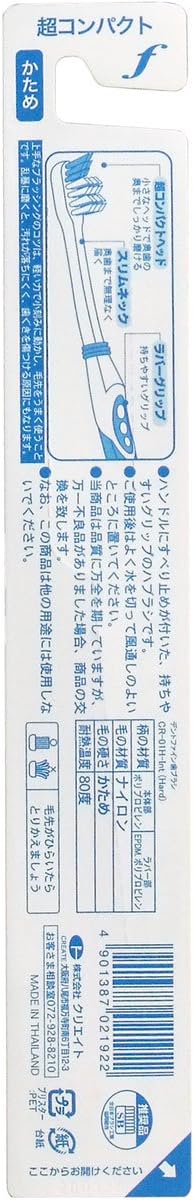 超コンパクト
f
かため
超コンパクトヘッド
小さなヘッドで奥歯の
奥までしっかり磨ける
スリムネック
奥歯まで無理なく
届く
ラバーグリップ
持ちやすいグリップ
上手なブラッシングのコツは、軽い力で小刻みに動かし、毛先をうまく使うこと
です。乱暴に磨くと、汚れが落ちにくく・歯ぐきを傷つける原因にもなります。
●ハンドルにすべり止めが付いた、持ちや
すいグリップのハブラシです。
●ご使用後はよく水を切って風通しのよい
ところに置いてください。
●当商品は品質に万全を期していますが、
万一不良品がありました場合、商品の交
換を致します。
●なお、この商品は他の用途には使用しな
いでください。
デントファイン歯ブラシ
CR-01H-Int (Hard)
柄の材質
本体部
ポリプロピレン
ラバー部
EPDM、ポリプロピレン
毛の材質 ナイロン
毛の硬さ かため
耐熱温度 80度
毛先がひらいたら
とりかえましょう
株式会社 クリエイト
CREATE 大阪府八尾市福万寺町南6丁目12-3
お客さま相談室072-928-8210
MADE IN THAILAND
4 901387 021922
プラ
ブリスター
:PET
紙
台紙
推奨品
SB
ここからお開けください